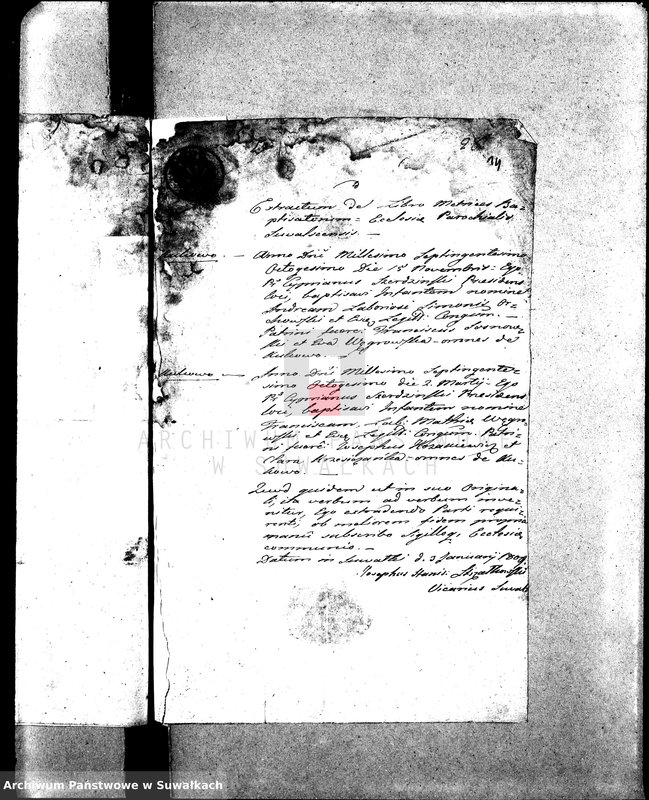 14
Extractum de Libro Metrices Ba-
ptisatorum Ecclesiæ Parochialis
Suwalscensis. —
Kukowo. — Anno Dni Millesimo Septingentesimo
Octogesimo Die 15 Novembris Ego
P. Cyprianus Presidens
loci, baptisavi Infantem nomine
Andream Laboriosi Simonis
et Evæ Legitt: Conjum. —
Patrini fuere: Franciscus Sosnow-
ski et Eva Węgrowska omnes de
Kukowo.
Kukowo — Anno Dni Millesimo Septingente-
simo Octogesimo die 2. Martij Ego
P. Cyprianus Presidens
loci, baptisavi Infantem nomine
Franciscam, Lab: Mathiæ Węgro-
wski et Evæ Legitt: Conjum: Patri-
ni fuere: Josephus et
Clara omnes de Ku-
kowo.
Quod quidem ut in suo Origina-
li, ita verbum ad verbum inve-
nitur, Ego extradendo Parti requi-
renti, ob meliorem fidem propria
manu subscribo Sigilloq. Ecclesiæ
communio. —
Datum in Suwałki d. 3 Januarij 1809
Josephus
Vicarius Suwal
ARCHIWUM PAŃSTWOWE
W SUWAŁKACH
Archiwum Państwowe w Suwałkach